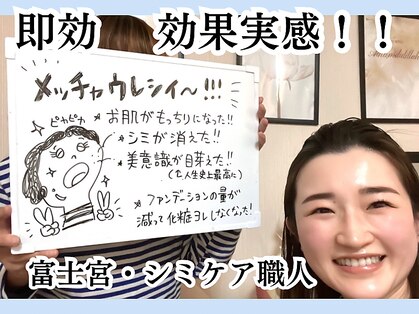 即効 効果実感！！
メッチャウレシイ〜!!!
ピカピカ
* お肌がもっちりになった!!
* シミが消えた!!
* 美意識が目芽えた!!
(七人生史上最高に)
* ファンデーションの量が
減って化粧ヨレしなくなった!
富士宮・シミケア職人